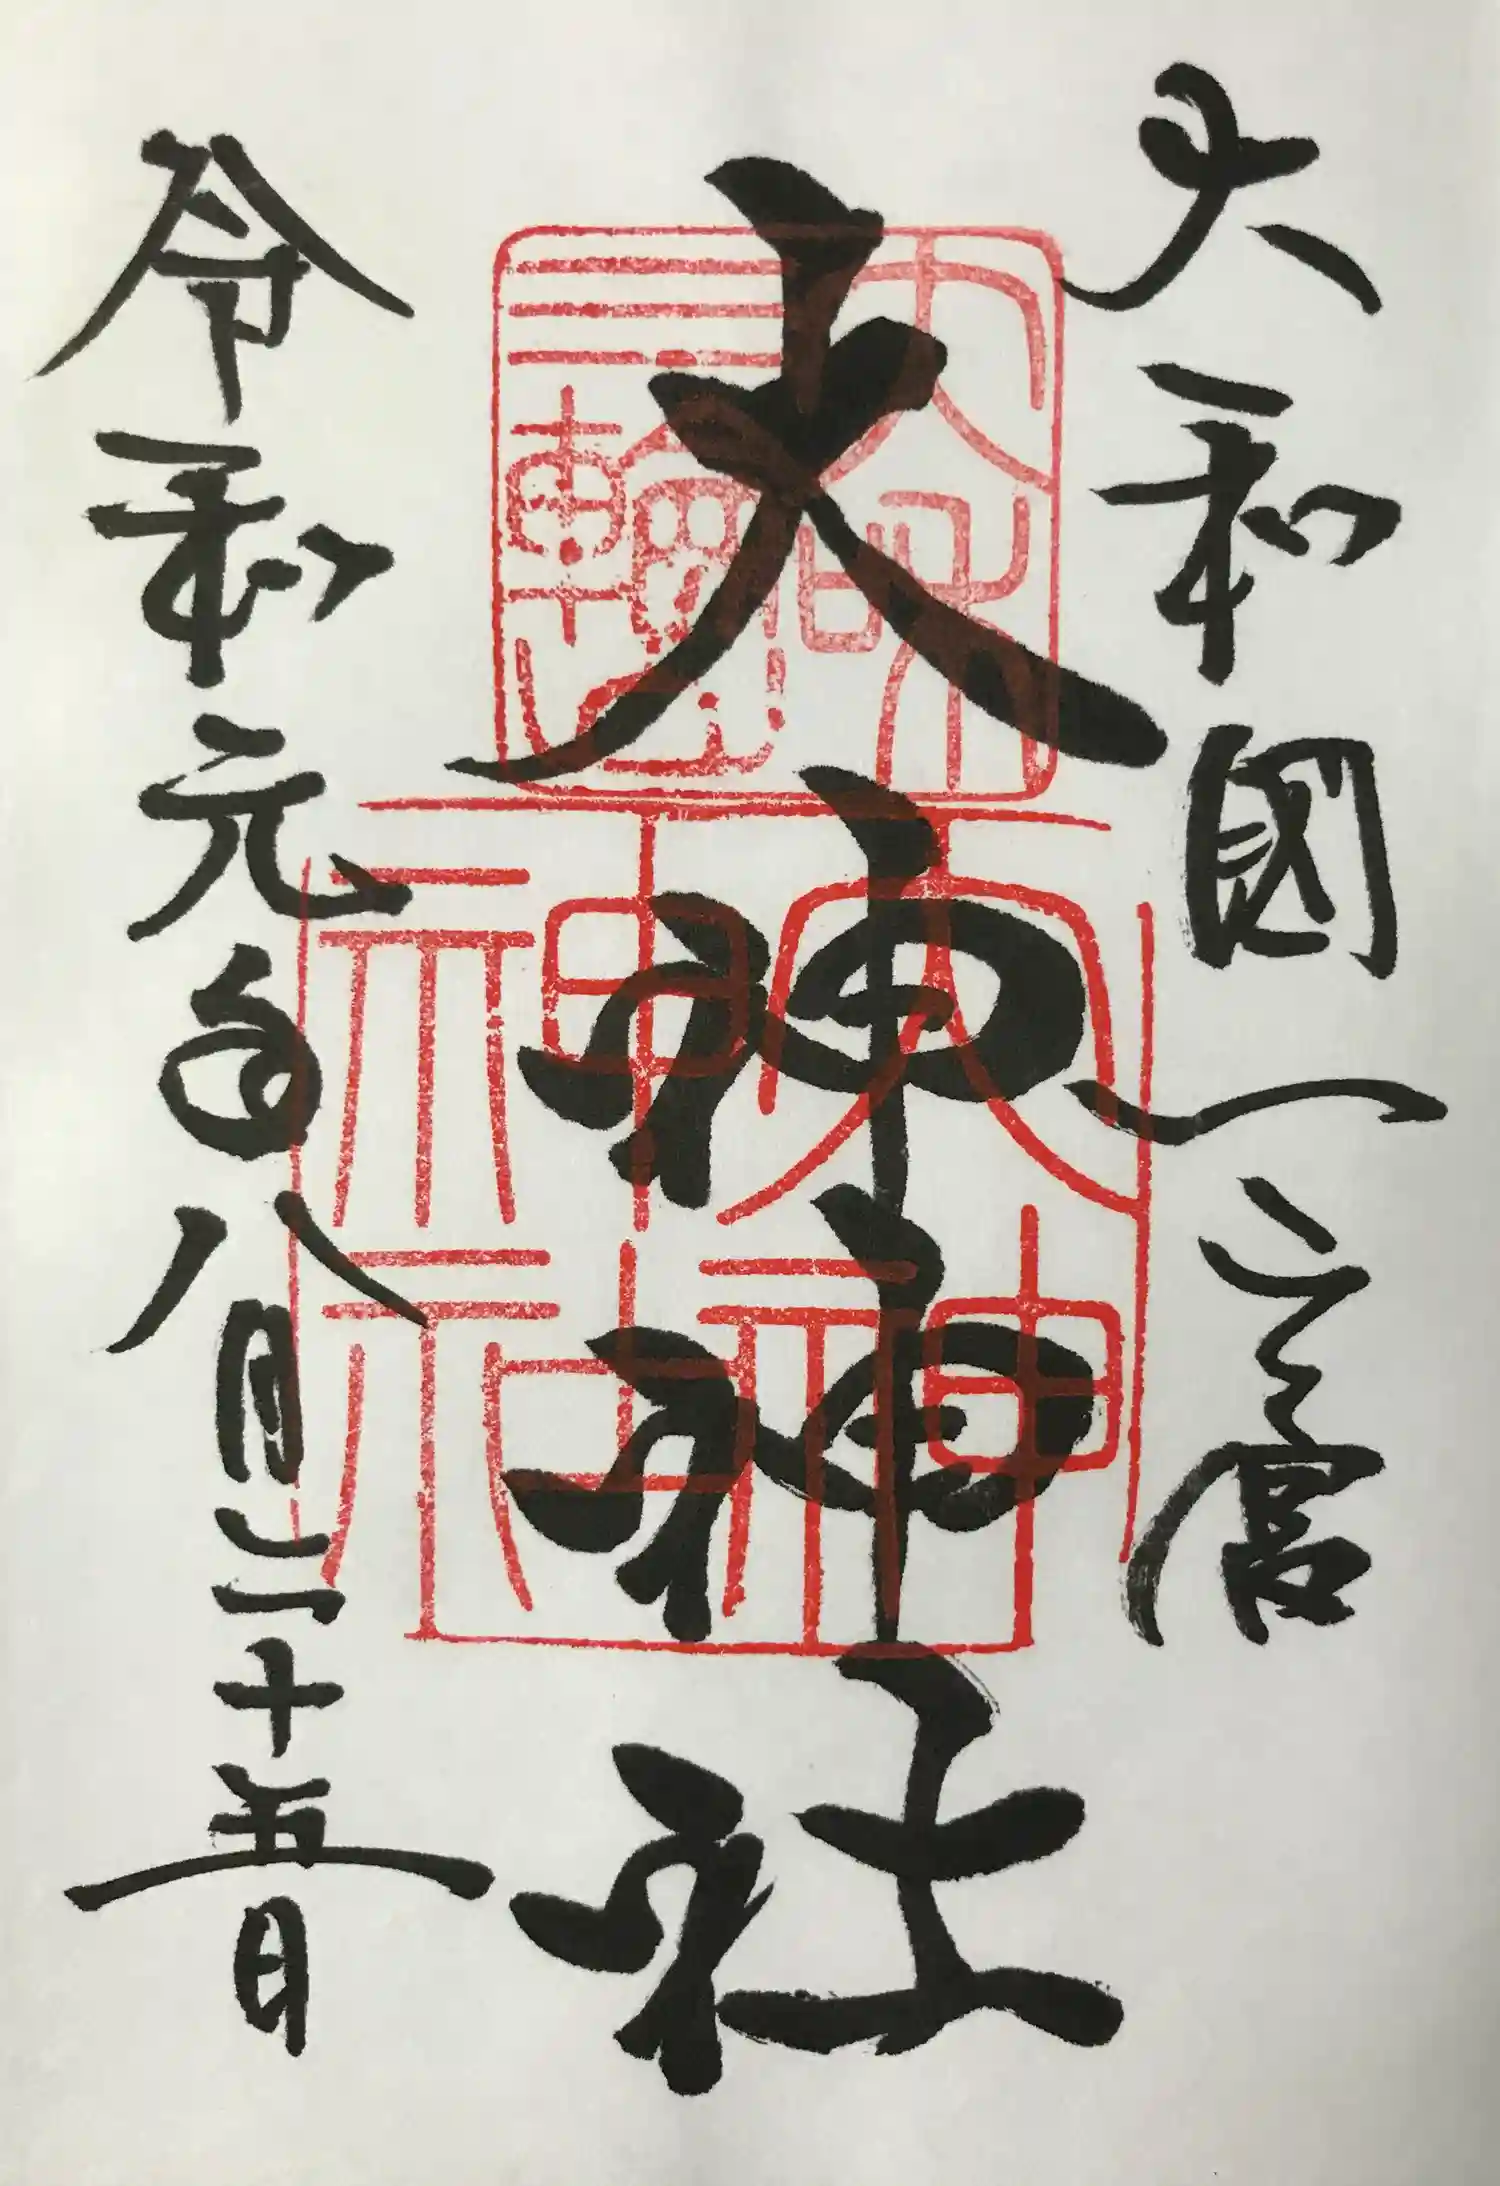 大和國一之宮
大神神社
大和
三輪
大神
神社
令和元年八月二十五日